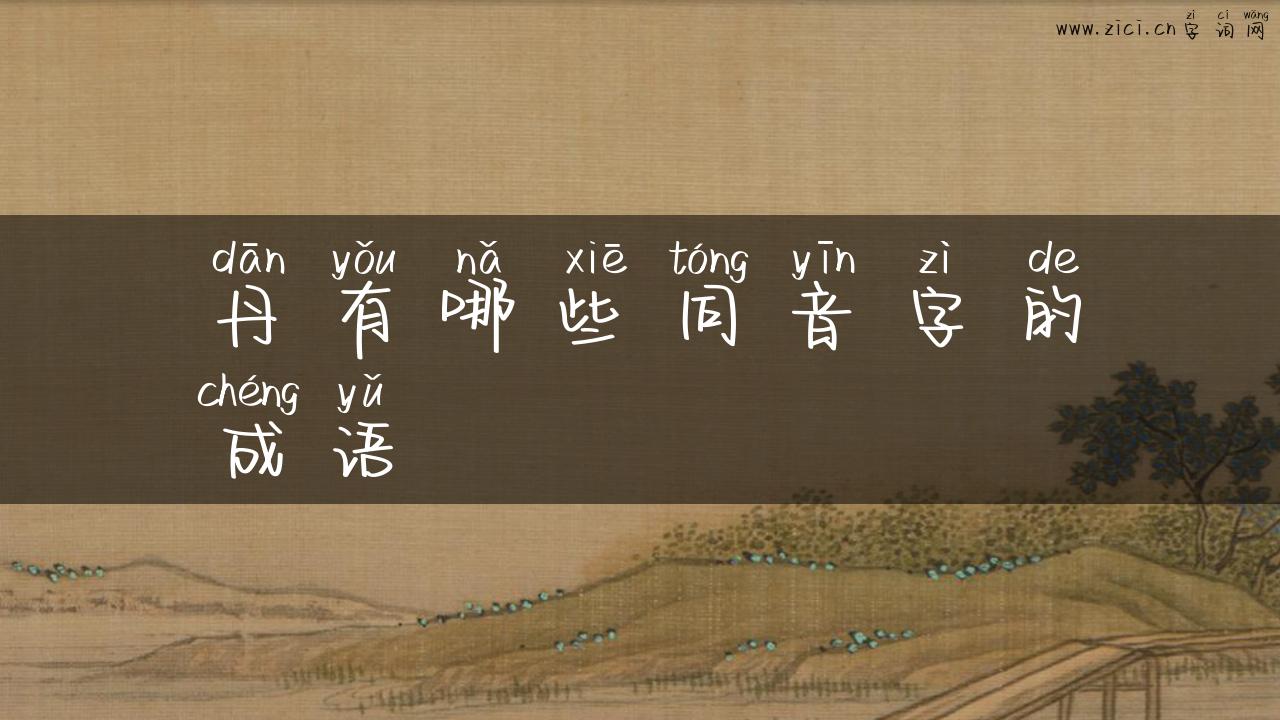 zì cí wǎng
www.zici.cn 字词网
dān yǒu nǎ xiē tóng yīn zì de
丹有哪些同音字的
chéng yǔ
成语